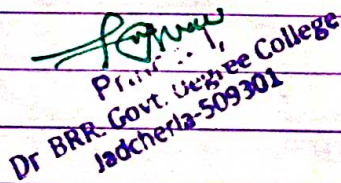 Dr BRR. Govt. Degree College
Jadcherla-509301